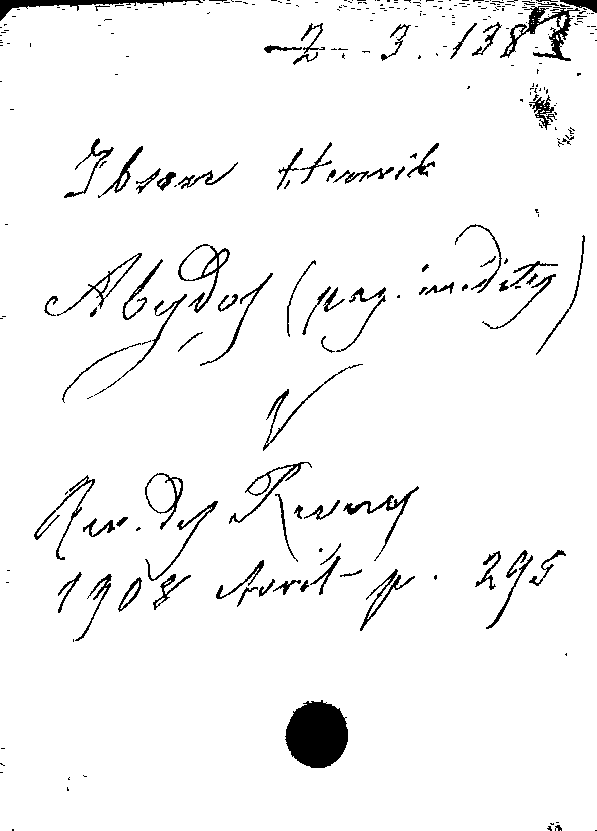 2. 3. 1383
Ibsen Henrik
Abydos (pag. inédites)
V
Rev. des Revues
1908 Avril p. 295